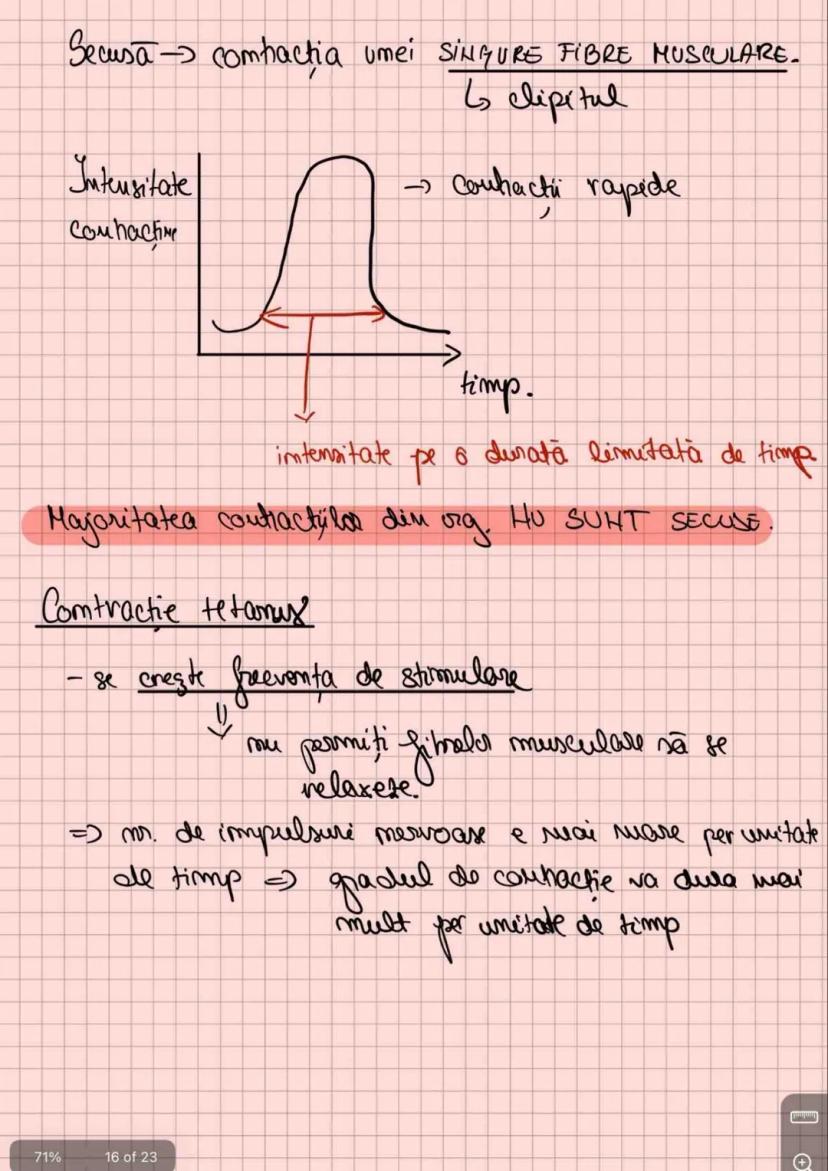 Secusă → contracția unei SINGURE FIBRE MUSCULARE.
↳ clipitul
Intensitate
contracție
→ contracții rapide
timp.
intensitate pe o durată limitată de timp
Majoritatea contracțiilor din org. NU SUNT SECUSE.
Contracție tetanus
- se crește frecvența de stimulare
⇓
nu permiți fibrelor musculare să se
relaxeze.
=> nr. de impulsuri nervoase e mai mare per unitate
de timp => gradul de contracție va dura mai
mult per unitate de timp
71% 16 of 23